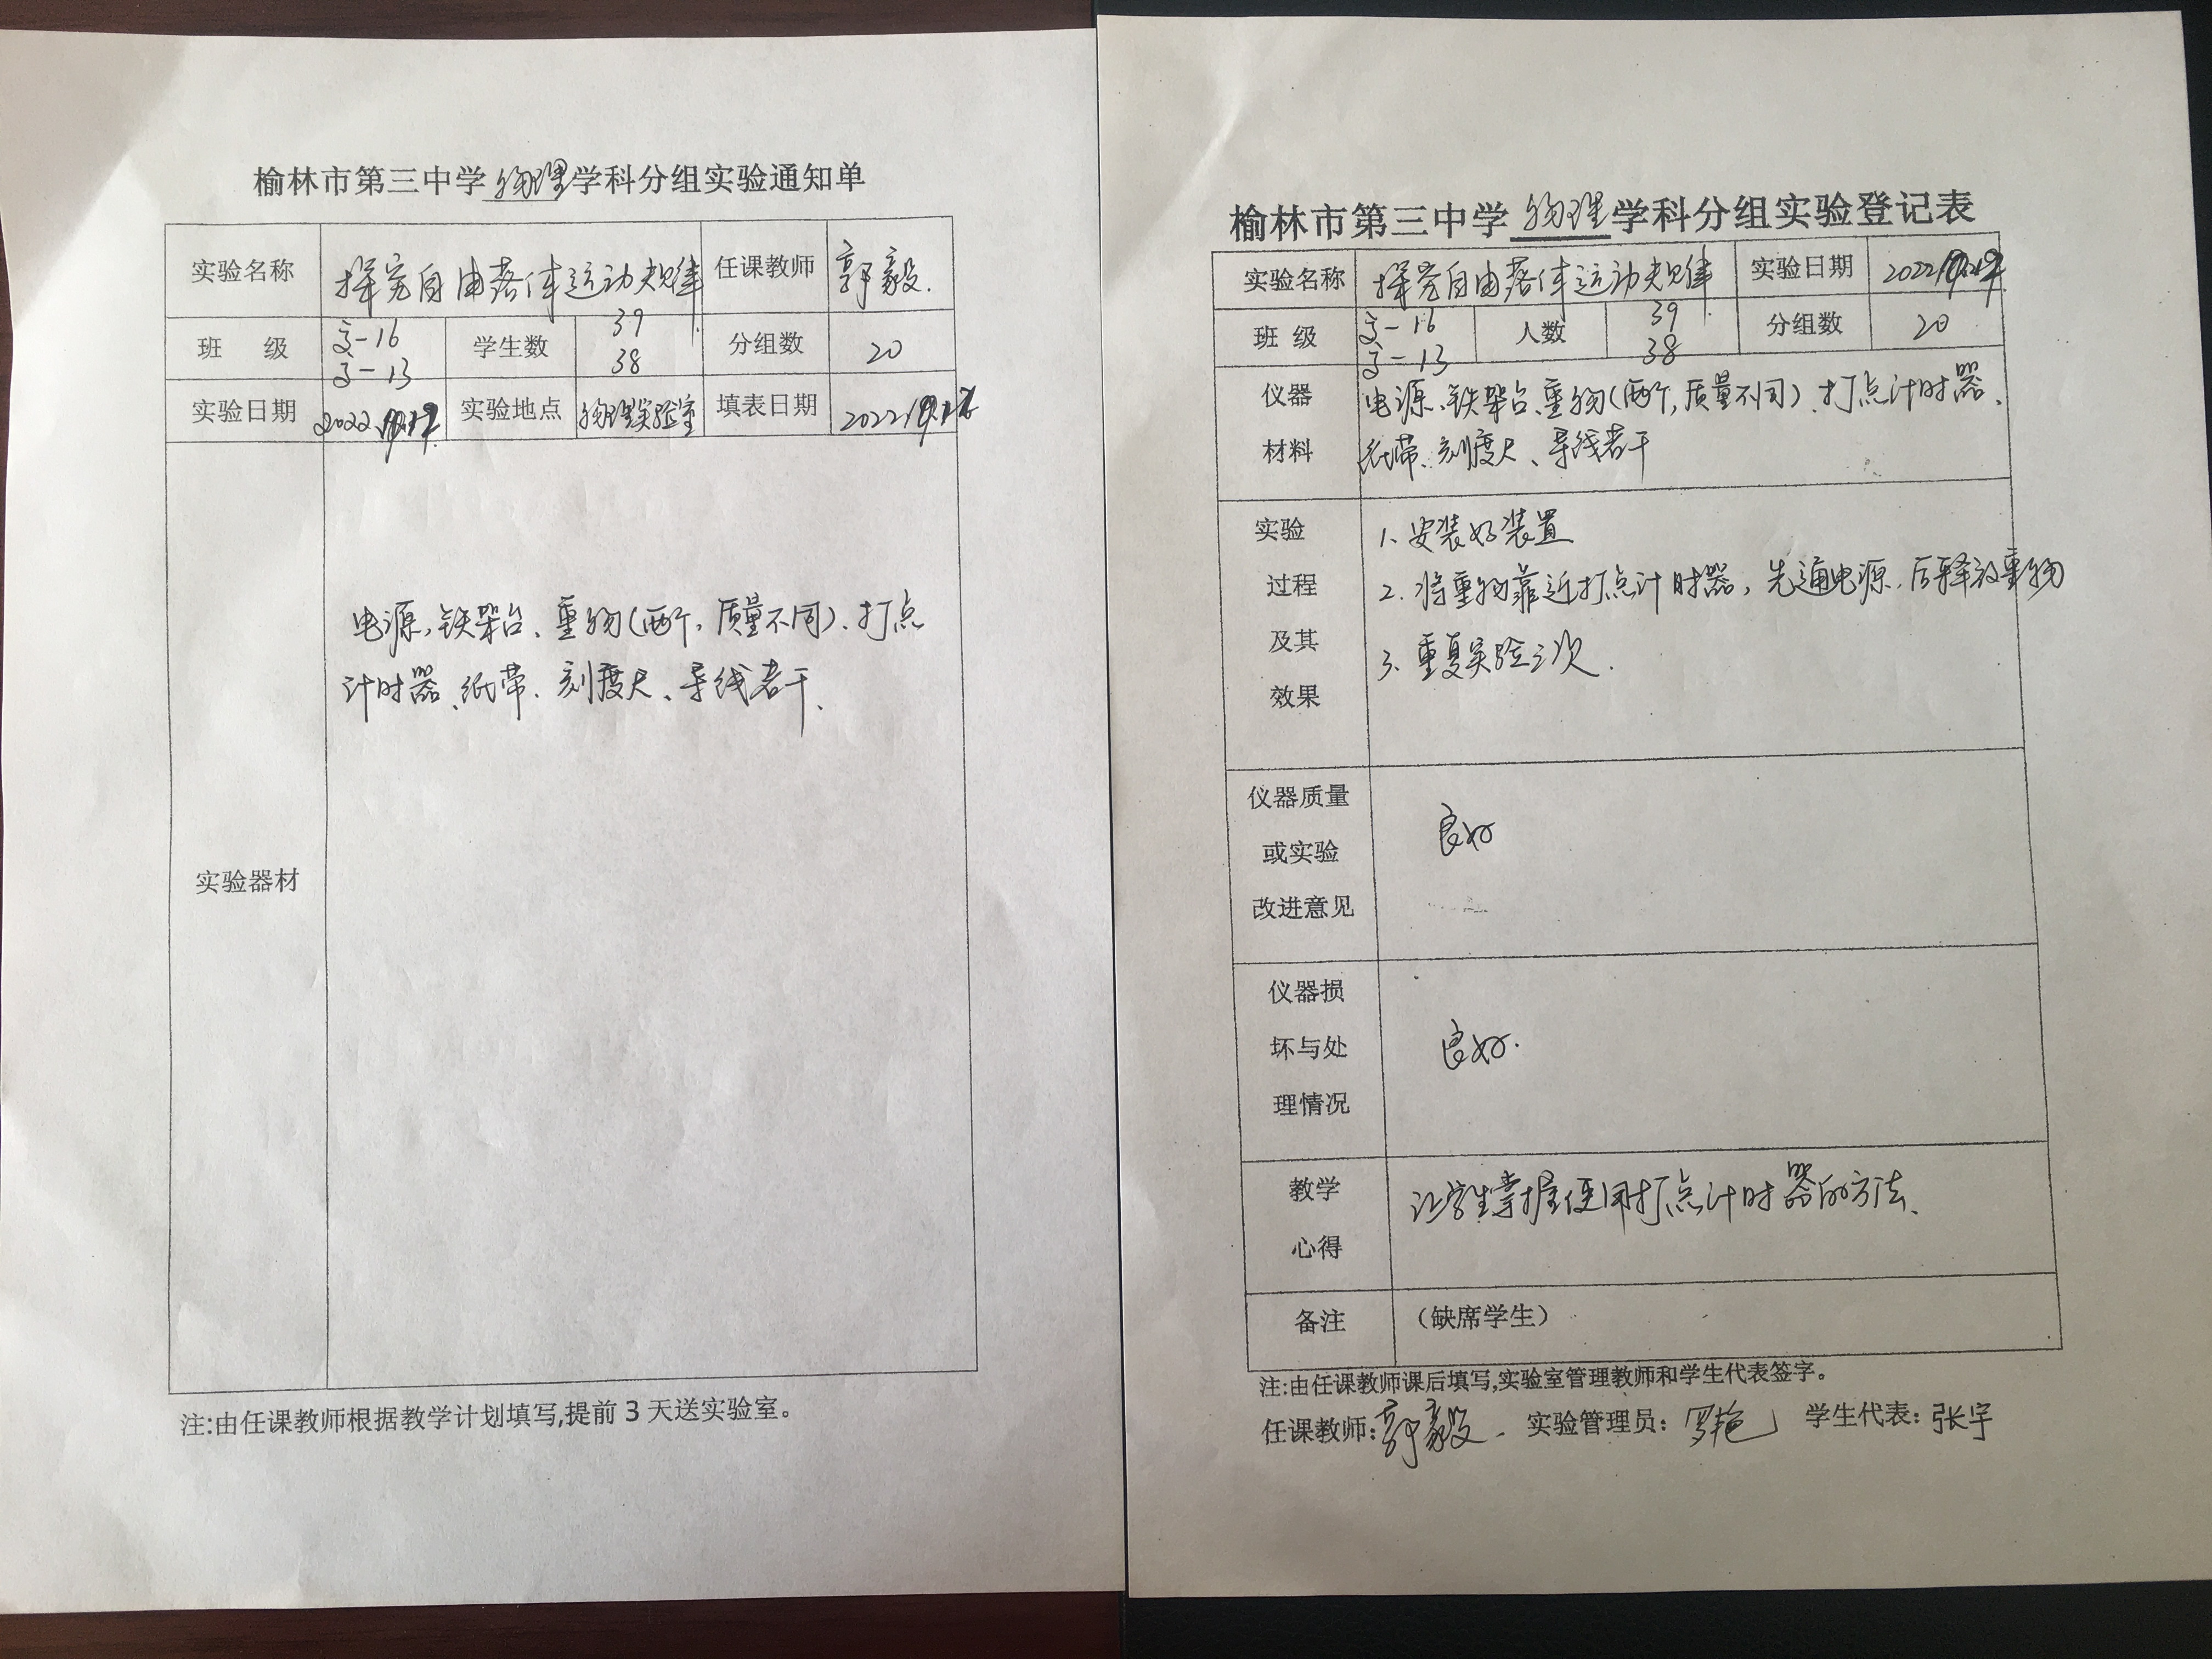 榆林市第三中学物理学科分组实验通知单
实验名称 探究自由落体运动规律 任课教师 郭毅.
班 级 高一16 学生数 39 分组数 20
高一13 38
实验日期 2022 实验地点 物理实验室 填表日期 2022
电源、铁架台、重物(两个,质量不同)、打点
计时器、纸带、刻度尺、导线若干、
实验器材
注:由任课教师根据教学计划填写,提前3天送实验室。
榆林市第三中学物理学科分组实验登记表
实验名称 探究自由落体运动规律 实验日期 2022
班 级 高一16 人数 39 分组数 20
高一13 38
仪器 电源、铁架台、重物(两个,质量不同)、打点计时器、
材料 纸带、刻度尺、导线若干
实验 1、安装好装置
过程 2. 将重物靠近打点计时器,先通电源,后释放重物
及其 3、重复实验三次.
效果
仪器质量 良好
或实验
改进意见
仪器损
坏与处 良好.
理情况
教学 让学生掌握使用打点计时器的方法、
心得
备注 (缺席学生)
注:由任课教师课后填写,实验室管理教师和学生代表签字。
任课教师:郭毅. 实验管理员:罗艳 学生代表:张宇